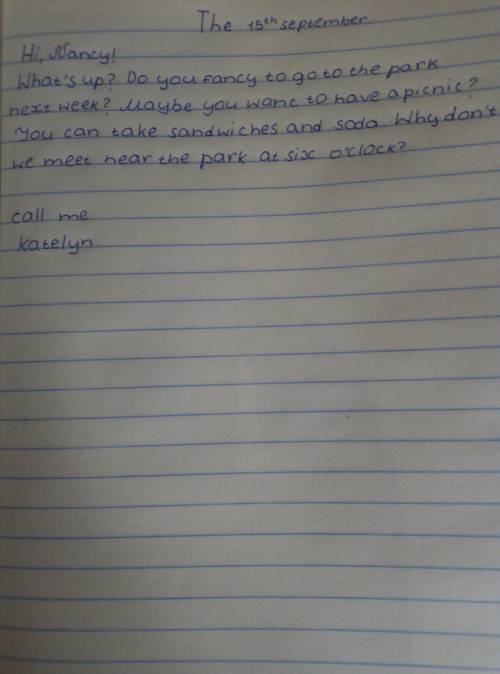 The 15th september.
Hi, Nancy!
What's up? Do you fancy to go to the park
next week? Maybe you want to have a picnic?
You can take sandwiches and soda. Why don't
we meet near the park at six o'clock?
call me
katelyn.